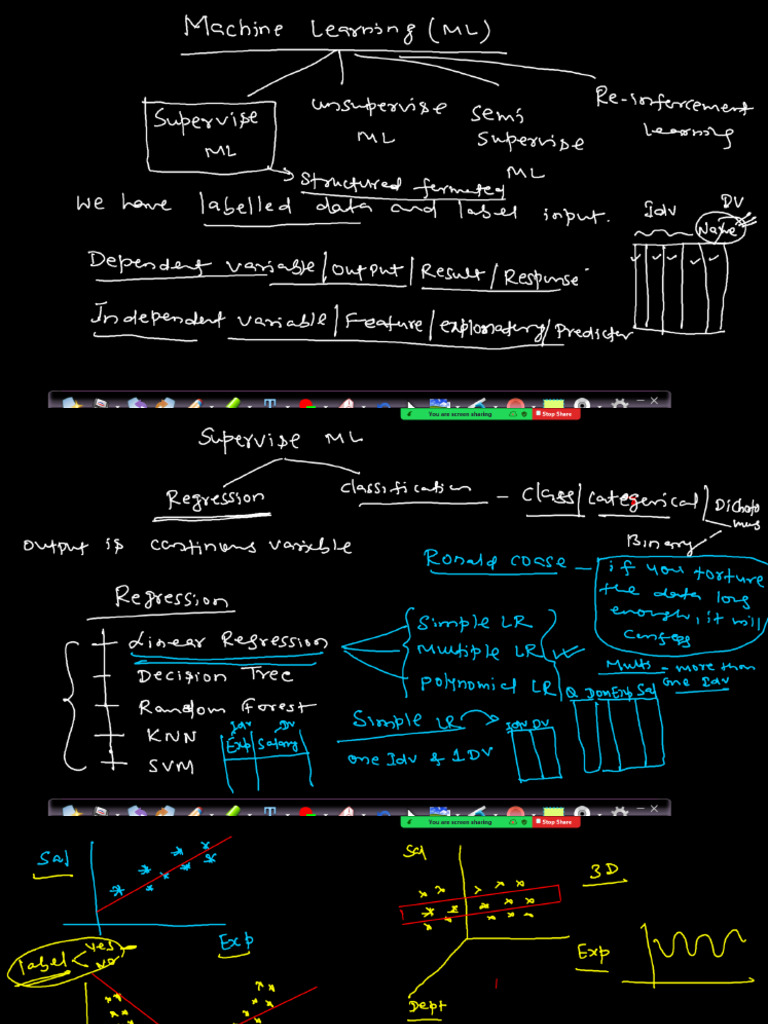 Machine Learning (ML)
Supervise
ML
unsupervise
ML
Semi
Supervise
ML
Re-inforcement
Learning
Structured fermated
We have labelled data and label input.
Idv
DV
Dependent variable/output/Result/Response
Independent variable/Feature/explonatory/Predicter
You are screen sharing
Stop Share
Supervise ML
Regression
classification - class/categorical/Dichoto
mus
Binary
output is continous variable
Ronald coase - if you torture
the data long
enough, it will
Regression
Linear Regression
Decision Tree
Random Forest
KNN
SVM
Simple LR
Multiple LR
polynomial LR
Multi - more than
one Idv
Q Dom Exp Sal
Simple LR
one Idv & 1 DV
Idv DV
Exp Salary
IDV DV
You are screen sharing
Stop Share
Sal
Exp
label < yes
no
Sal
3D
Exp
Dept